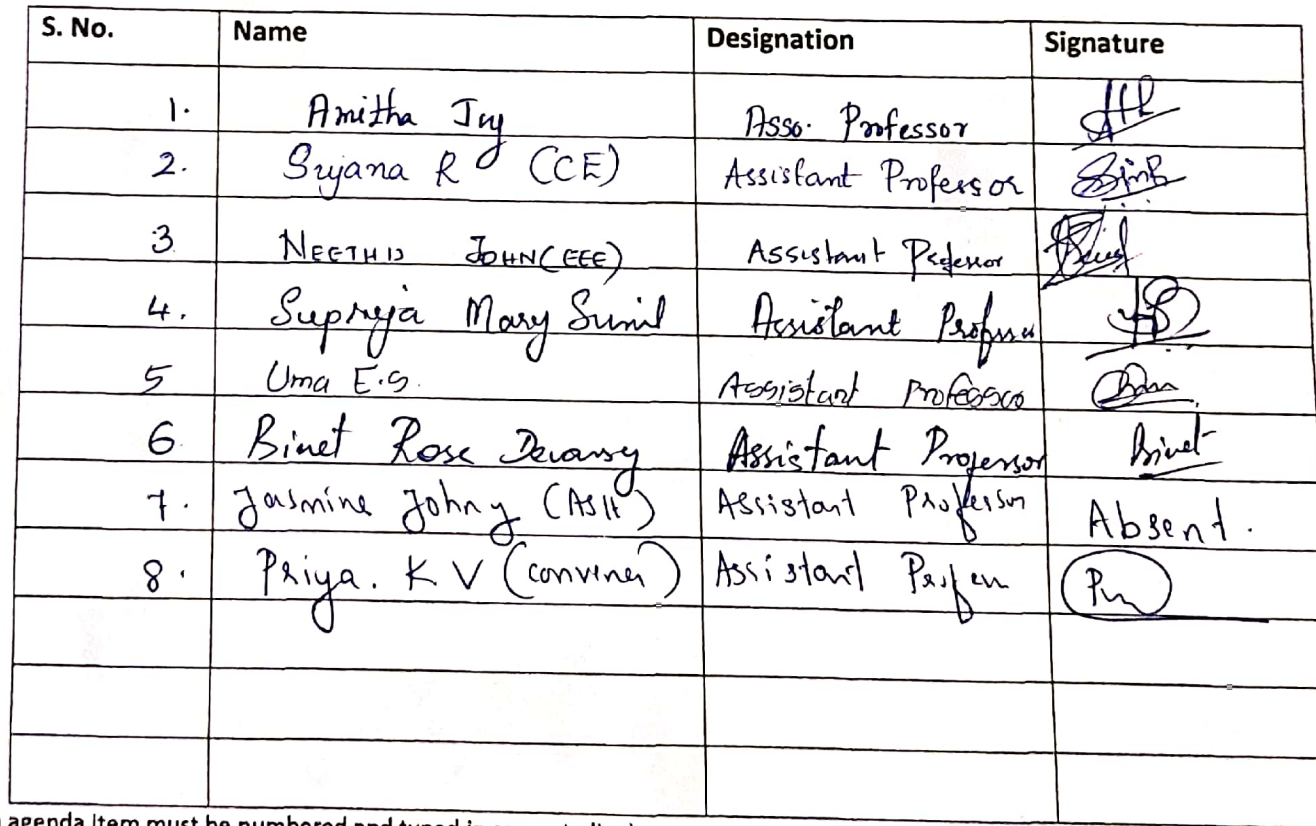 S. No. Name Designation Signature
1. Amitha Joy Asso. Professor
2. Srijana R (CE) Assistant Professor
3 NEETHU JOHN (EEE) Assistant Professor
4. Supreja Mary Sunil Assistant Professor
5 Uma E.S. Assistant Professor
6. Binet Rose Devassy Assistant Professor Binet
7. Jasmine Johny (ASH) Assistant Professor Absent.
8. Priya. K V (convener) Assistant Profen
agenda item must be numbered and typed in